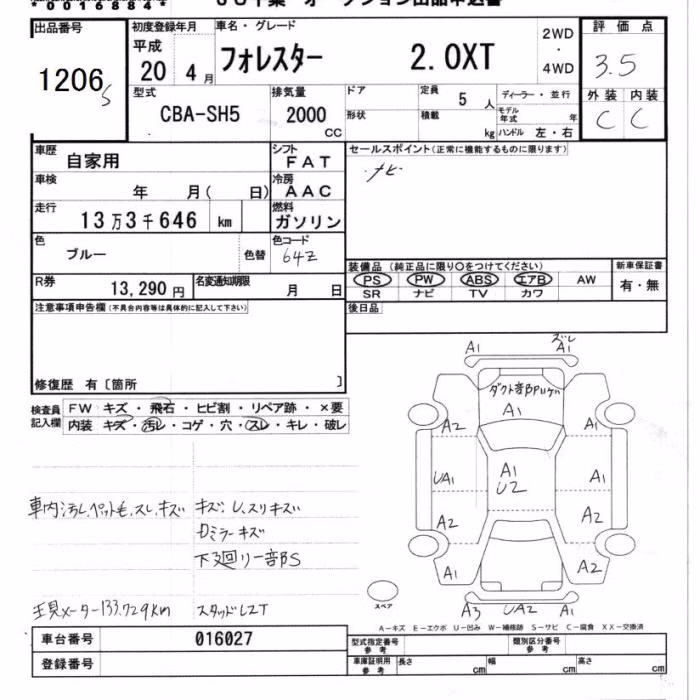 *00168844*
出品番号 初度登録年月 車名・グレード 2WD・4WD 評価点
1206 S
平成 20 4月 フォレスター 2.0XT 3.5
型式 CBA-SH5
排気量 2000 CC
ドア 形状
定員 5 人 積載 kg
ディーラー・並行
モデル年式 年
ハンドル 左・右
外装 内装
C C
車歴 自家用
シフト FAT
セールスポイント(正常に機能するものに限ります)
・ナビ
車検 年 月( 日)
冷房 AAC
走行 13万3千646 km
燃料 ガソリン
色 ブルー 色替
色コード 64Z
装備品(純正品に限り○をつけてください) 新車保証書
PS PW ABS エアB AW 有・無
SR ナビ TV カワ
R券 13,290円 名変通知期限 月 日
後日品
注意事項申告欄(不具合内容等は具体的に記入して下さい)
修復歴 有〔箇所 〕
検査員記入欄
FW キズ・飛石・ヒビ割・リペア跡・×要
内装 キズ・汚レ・コゲ・穴・スレ・キレ・破レ
A1 ズレ A1
A1
A2 A1
UA1 A1 U2 A1
A2 A2
A1 A2
A3 UA2 A1
スペア
車内汚レ、ペット毛、スレ、キズ
キズ・U、スリキズ
カミラーキズ
下廻リ一部S
現メーター133,729km
スタッドレスT
A-キズ E-エクボ U-凹み W-補修跡 S-サビ C-腐食 XX-交換済
車台番号 016027
型式指定番号 参考 類別区分番号 参考
登録番号
車庫証明用 参考 長さ cm 幅 cm 高さ cm